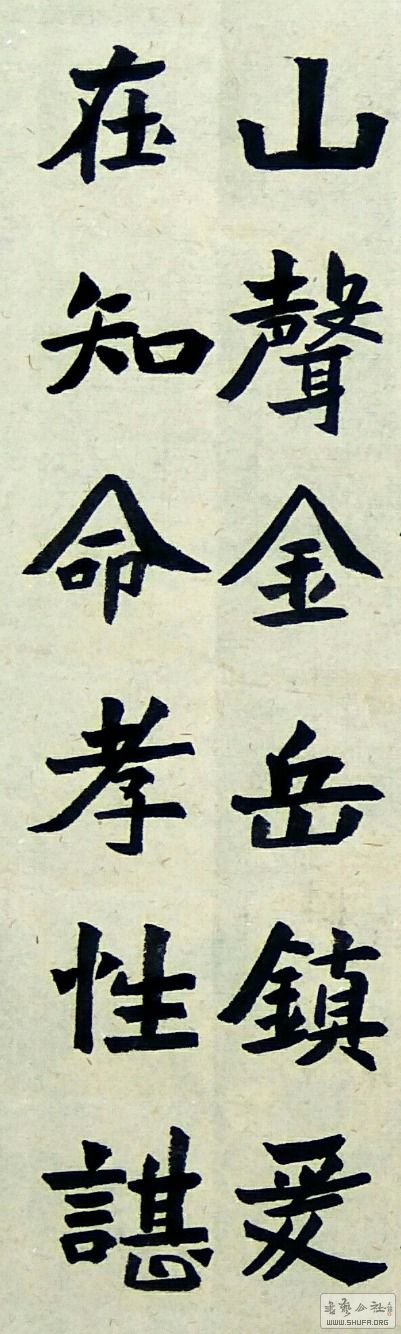 山聲金岳鎮爰
在知命孝性諶
书艺公社
WWW.SHUFA.ORG